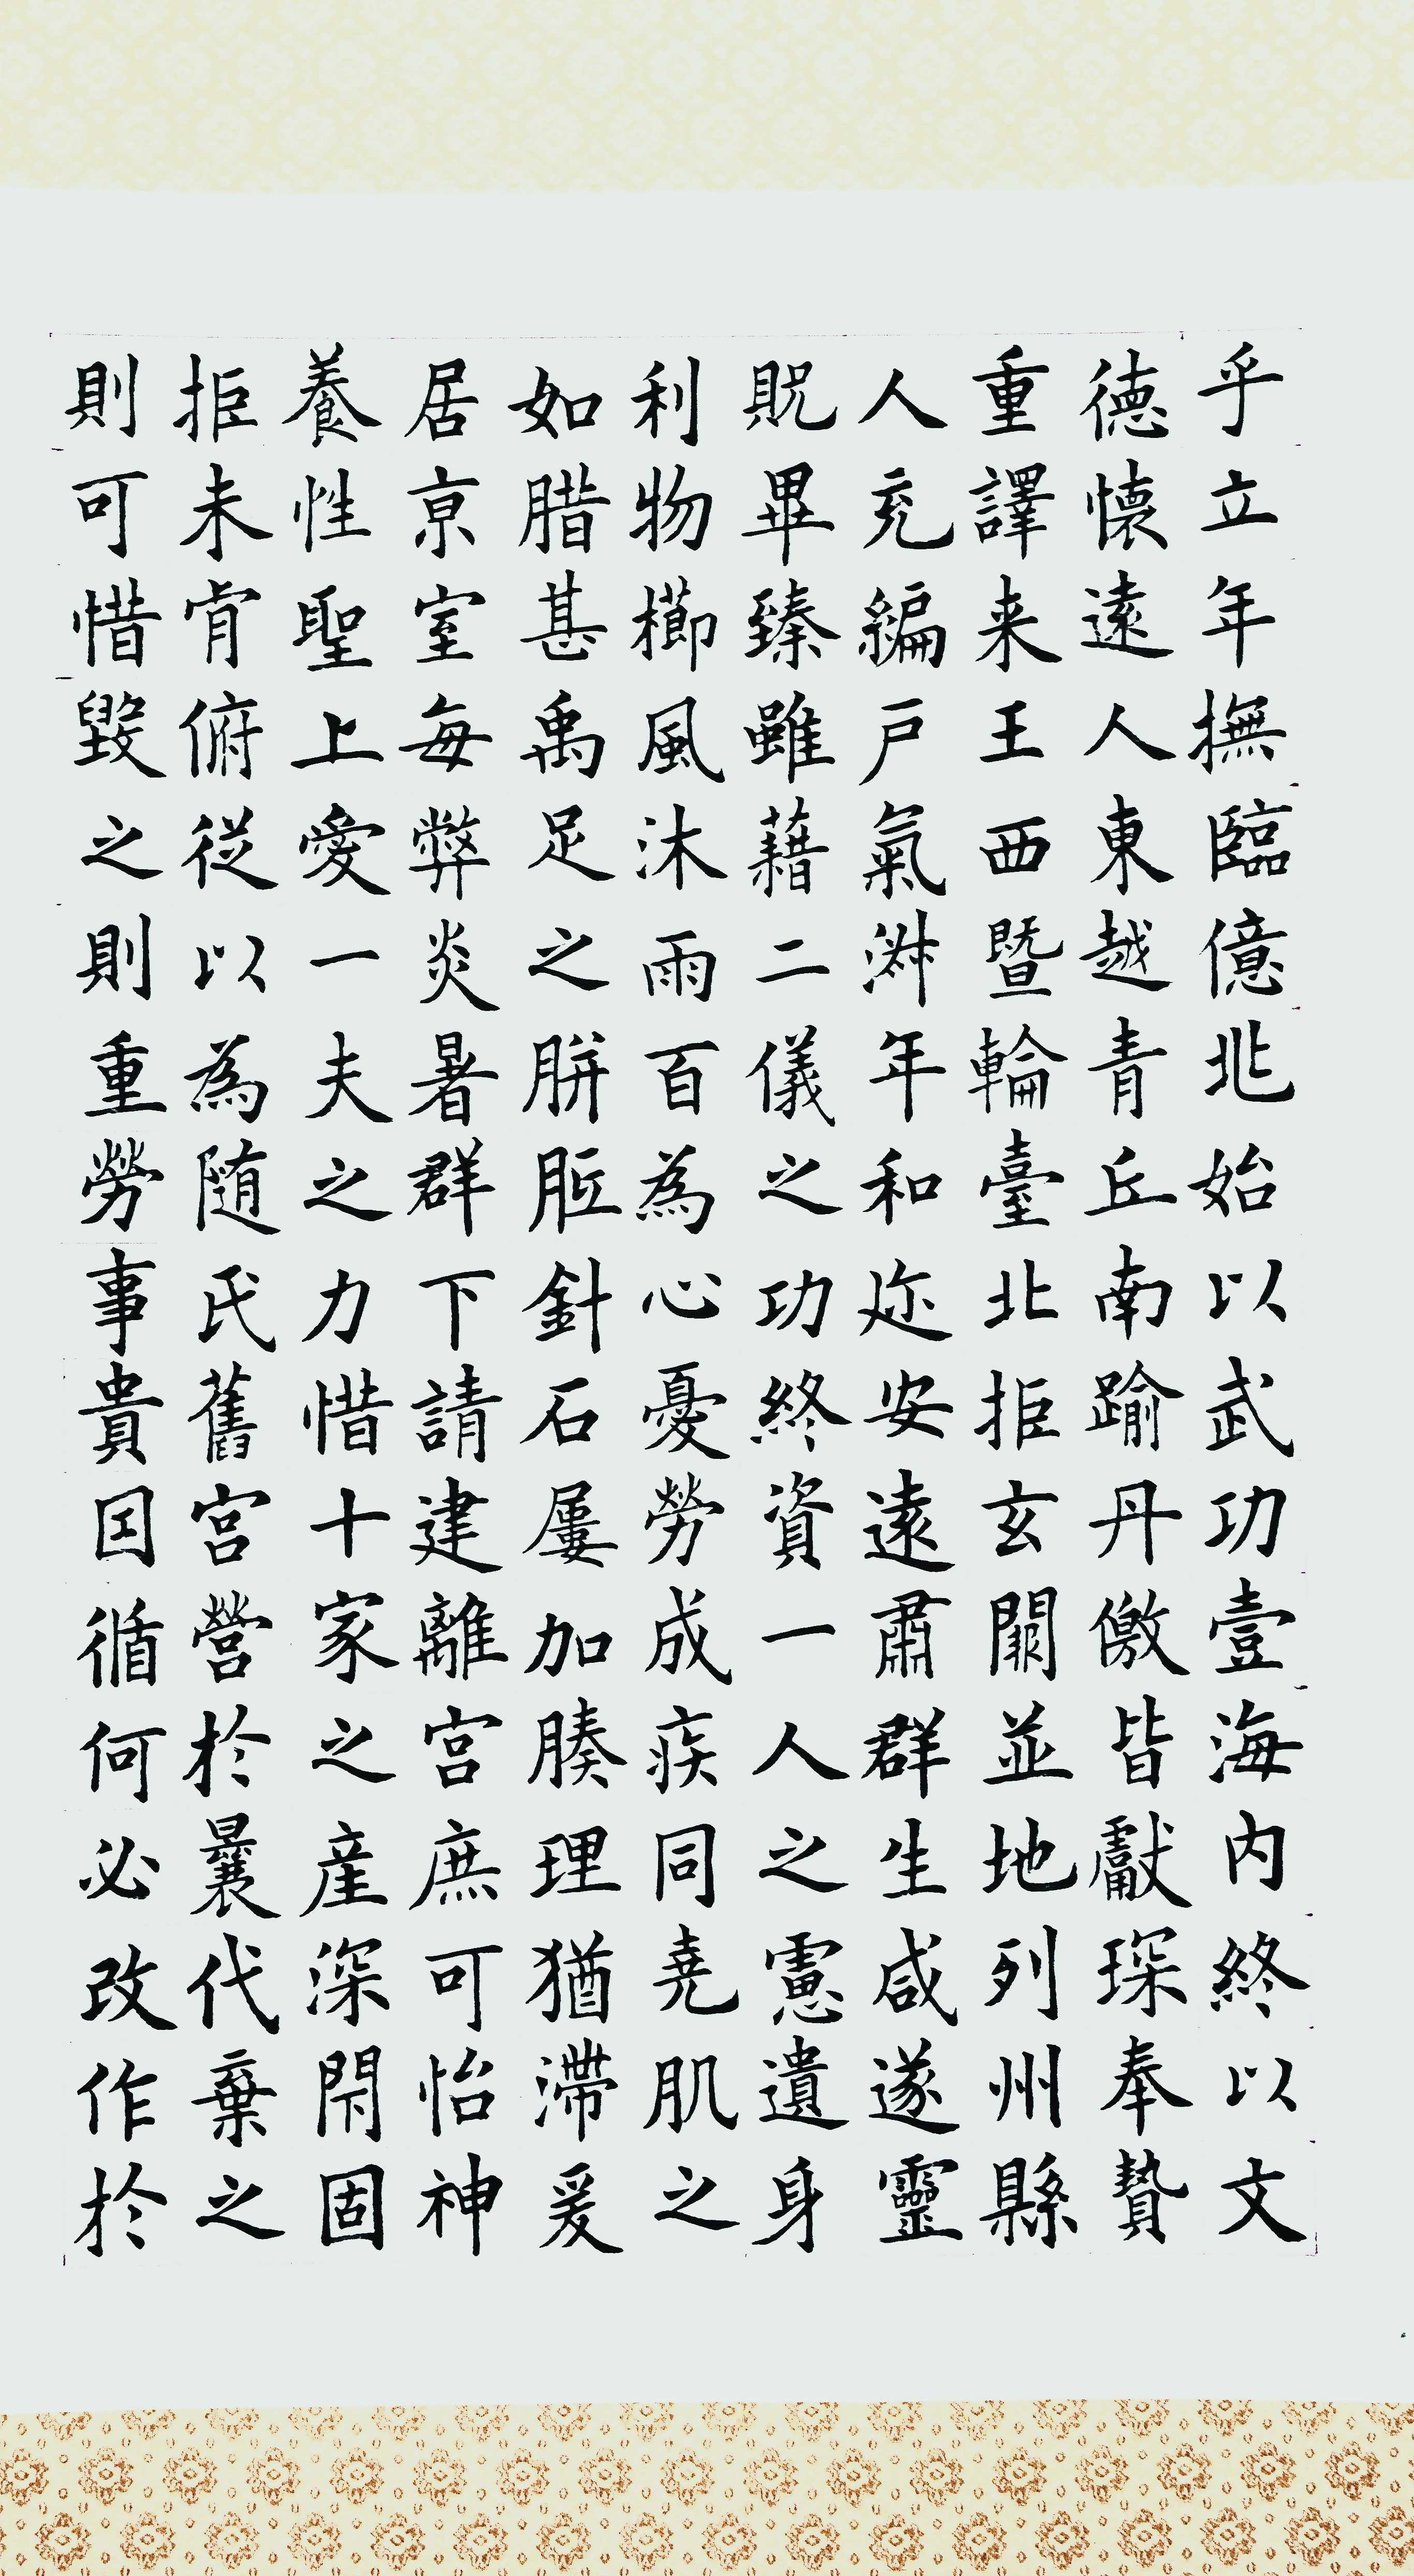 乎立年撫臨億兆始以武功壹海内終以文
德懷遠人東越青丘南踰丹儌皆獻琛奉贄
重譯来王西暨輪臺北拒玄闕並地列州縣
人充編戶氣淑年和迩安遠肅群生咸遂靈
貺畢臻雖藉二儀之功終資一人之慮遺身
利物櫛風沐雨百為心憂勞成疾同堯肌之
如腊甚禹足之胼胝針石屢加腠理猶滯爰
居京室每弊炎暑群下請建離宮庶可怡神
養性聖上愛一夫之力惜十家之産深閇固
拒未肯俯從以為随氏舊宮營於曩代棄之
則可惜毀之則重勞事貴因循何必改作於